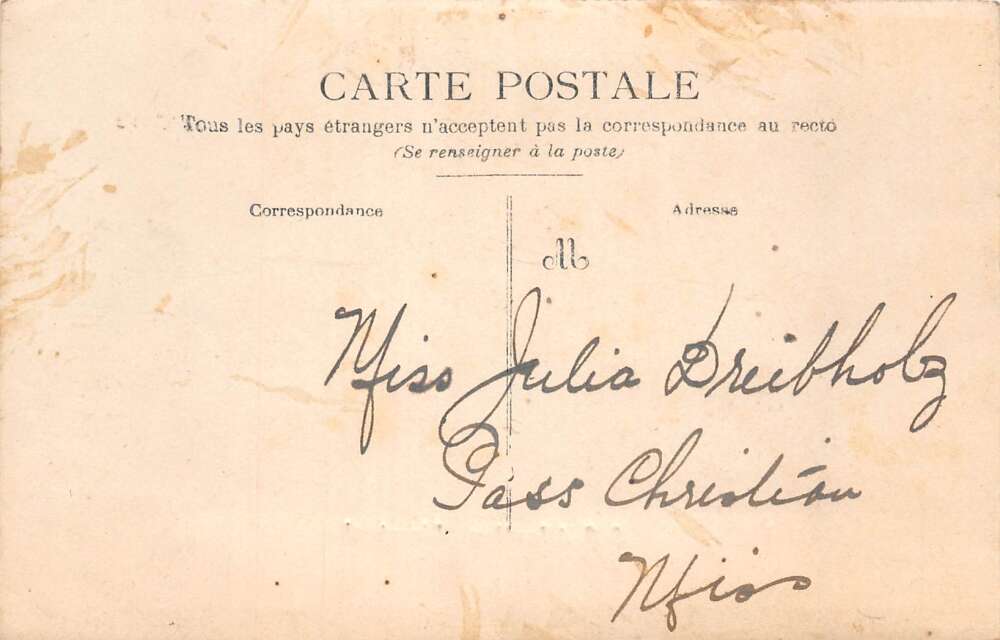 CARTE POSTALE
Tous les pays étrangers n'acceptent pas la correspondance au recto
(Se renseigner à la poste)
Correspondance
Adresse
M
Miss Julia Dreibholz
Pass Christian
Miss